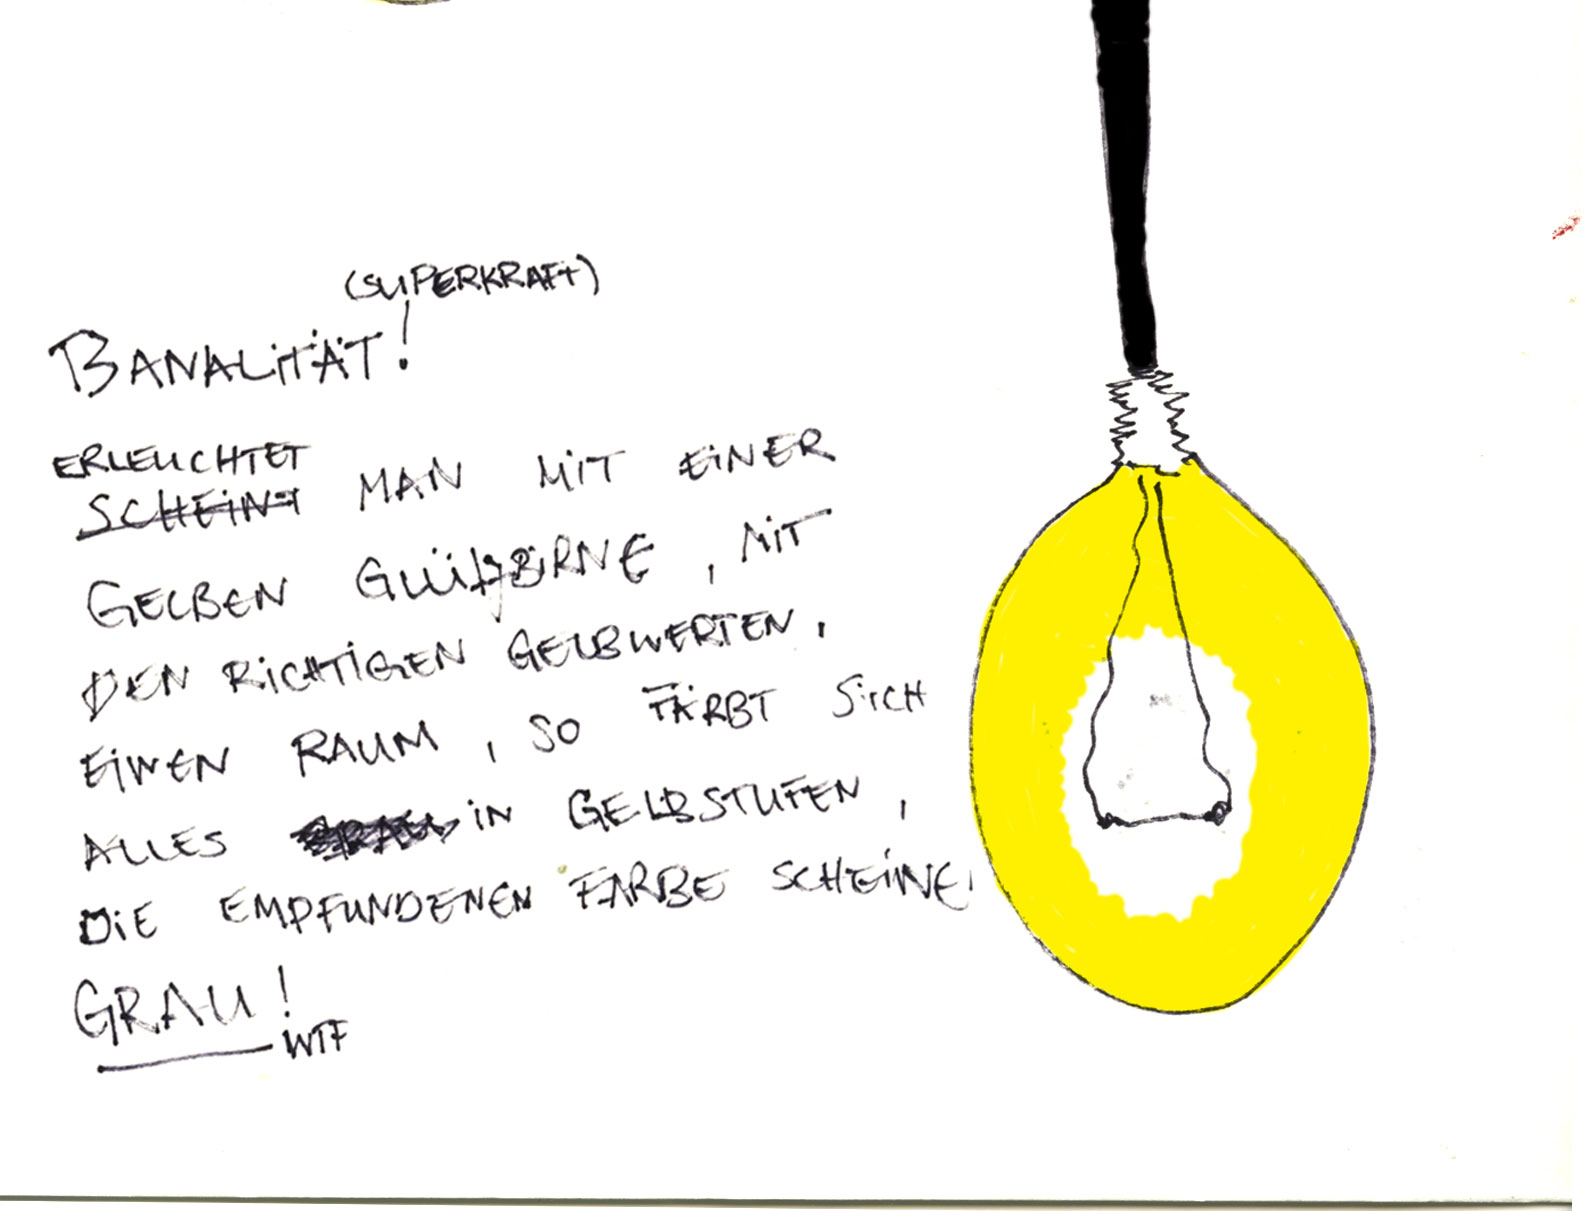 (SUPERKRAFT)
BANALITÄT!
ERLEUCHTET
SCHEINT MAN MIT EINER
GELBEN GLÜHBIRNE, MIT
DEN RICHTIGEN GELBWERTEN,
EINEN RAUM, SO FÄRBT SICH
ALLES IN GELBSTUFEN,
DIE EMPFUNDENEN FARBE SCHEINE
GRAU!
WTF